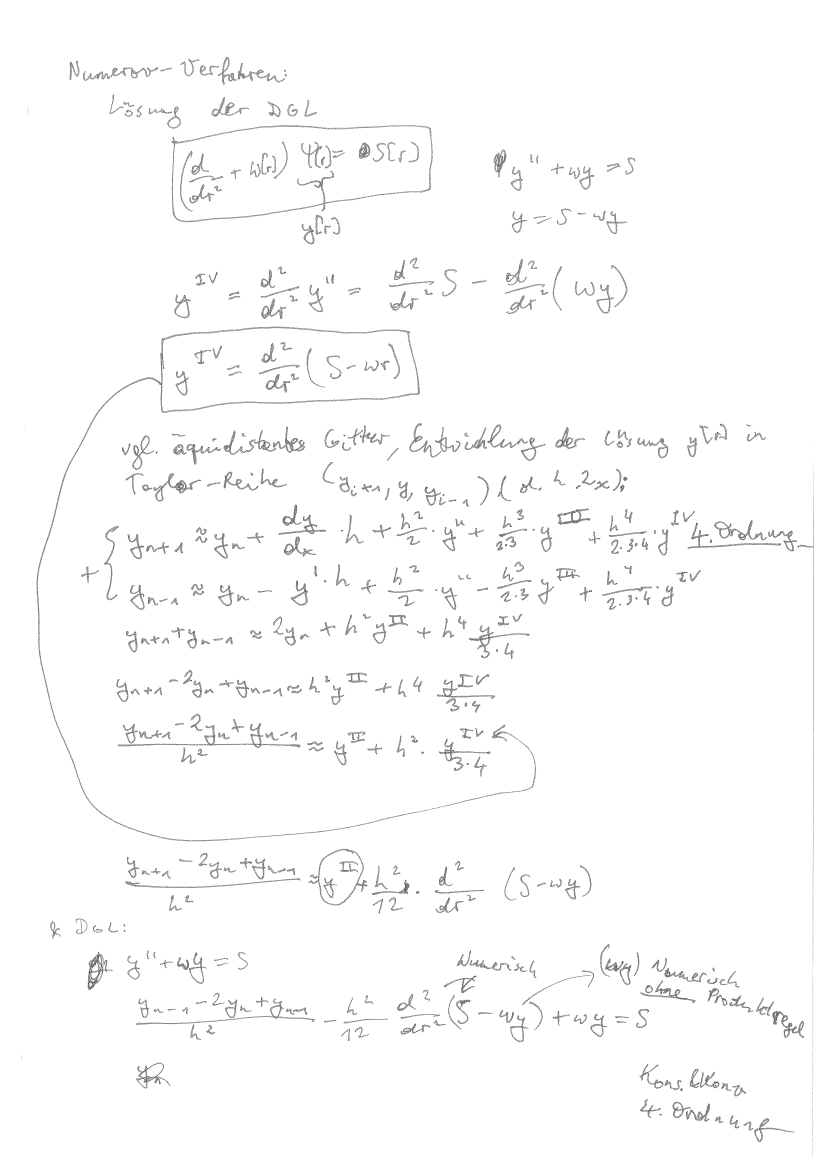 Numerov-Verfahren:
Lösung der DGL
(d/dr² + w[r]) Ψ[r] = S[r]
y[r]
y'' + wy = S
y = S - wy
y^IV = d²/dr² y'' = d²/dr² S - d²/dr² (wy)
y^IV = d²/dr² (S - wr)
vgl. äquidistantes Gitter, Entwicklung der Lösung y[r] in
Taylor-Reihe (y_{i+1}, y, y_{i-1}) (d. h. 2x);
+ { y_{n+1} ≈ y_n + dy/dx · h + h²/2 · y'' + h³/2·3 · y^III + h⁴/2·3·4 · y^IV 4. Ordnung
y_{n-1} ≈ y_n - y' · h + h²/2 · y'' - h³/2·3 y^III + h⁴/2·3·4 · y^IV
y_{n+1} + y_{n-1} ≈ 2y_n + h² y^II + h⁴ y^IV/3·4
y_{n+1} - 2y_n + y_{n-1} ≈ h² y^II + h⁴ y^IV/3·4
(y_{n+1} - 2y_n + y_{n-1})/h² ≈ y^II + h² · y^IV/3·4
(y_{n+1} - 2y_n + y_{n-1})/h² ≈ y^II + h²/12 · d²/dr² (S - wy)
& DGL:
y'' + wy = S
Numerisch
(wy) Numerisch
ohne Produktregel
(y_{n-1} - 2y_n + y_{n-1})/h² - h²/12 d²/dr² (S - wy) + wy = S
4. Ordnung